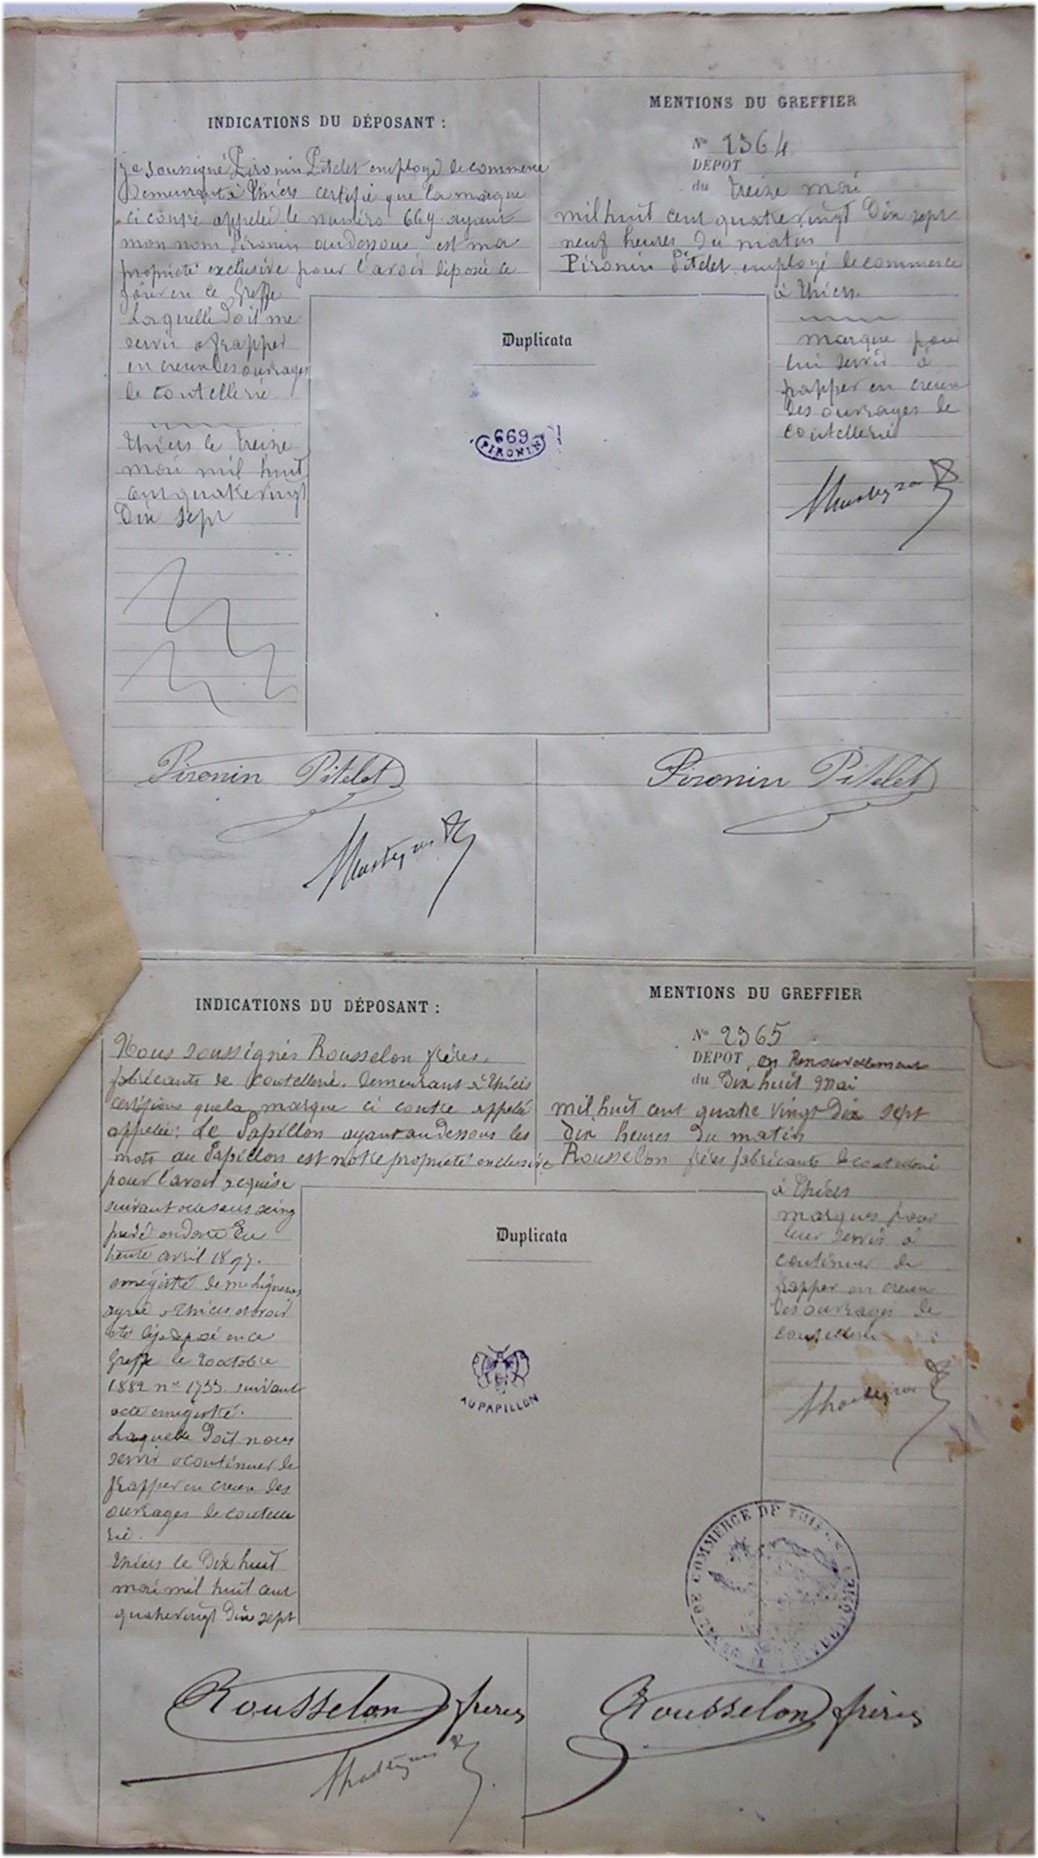 INDICATIONS DU DÉPOSANT :
je soussigné Pironin Pitelet employé de commerce
Demeurant à Thiers certifie que la marque
ci contre appelée le numéro 669 ayant
mon nom Pironin au dessous est ma
propriété exclusive pour l'avoir déposée ce
jour en ce Greffe
Laquelle doit me
servir a frapper
en creux des ouvrages
de coutellerie
Thiers le treize
mai mil huit
cent quatre vingt
Dix sept
MENTIONS DU GREFFIER
No 2364
DÉPOT
du treize mai
mil huit cent quatre vingt Dix sept
neuf heures du matin
Pironin Pitelet employé de commerce
à Thiers
marque pour
lui servir à
frapper en creux
des ouvrages de
coutellerie
Duplicata
669
PIRONIN
Pironin Pitelet
Pironin Pitelet
INDICATIONS DU DÉPOSANT :
Nous soussignés Rousselon frères,
fabricants de coutellerie, demeurant à Thiers
certifions que la marque ci contre appelée
appelée : Le Papillon ayant au dessous les
mots au Papillon est notre propriété exclusive
pour l'avoir acquise
suivant acte sous seing
privé en date du
trente avril 1897.
enregistré de
à Thiers et avoir
été déjà déposé en ce
Greffe le octobre
1882 no 1733 suivant
acte enregistré.
Laquelle Doit nous
servir a continuer de
frapper en creux des
ouvrages de coutelle
rie.
Thiers le Dix huit
mai mil huit cent
quatre vingt Dix sept
MENTIONS DU GREFFIER
No 2365
DÉPOT en Renouvellement
du Dix huit Mai
mil huit cent quatre vingt Dix sept
dix heures du matin
Rousselon frères fabricants de coutellerie
à Thiers
marques pour
leur servir à
continuer de
frapper en creux
des ouvrages de
coutellerie
Duplicata
AU PAPILLON
COMMERCE DE THIERS
Rousselon frères
Rousselon frères